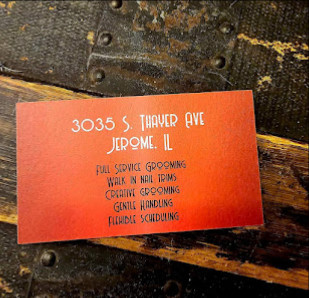 3035 S. Thayer Ave
Jerome, IL
Full Service Grooming
Walk in nail trims
Creative grooming
Gentle Handling
Flexible scheduling